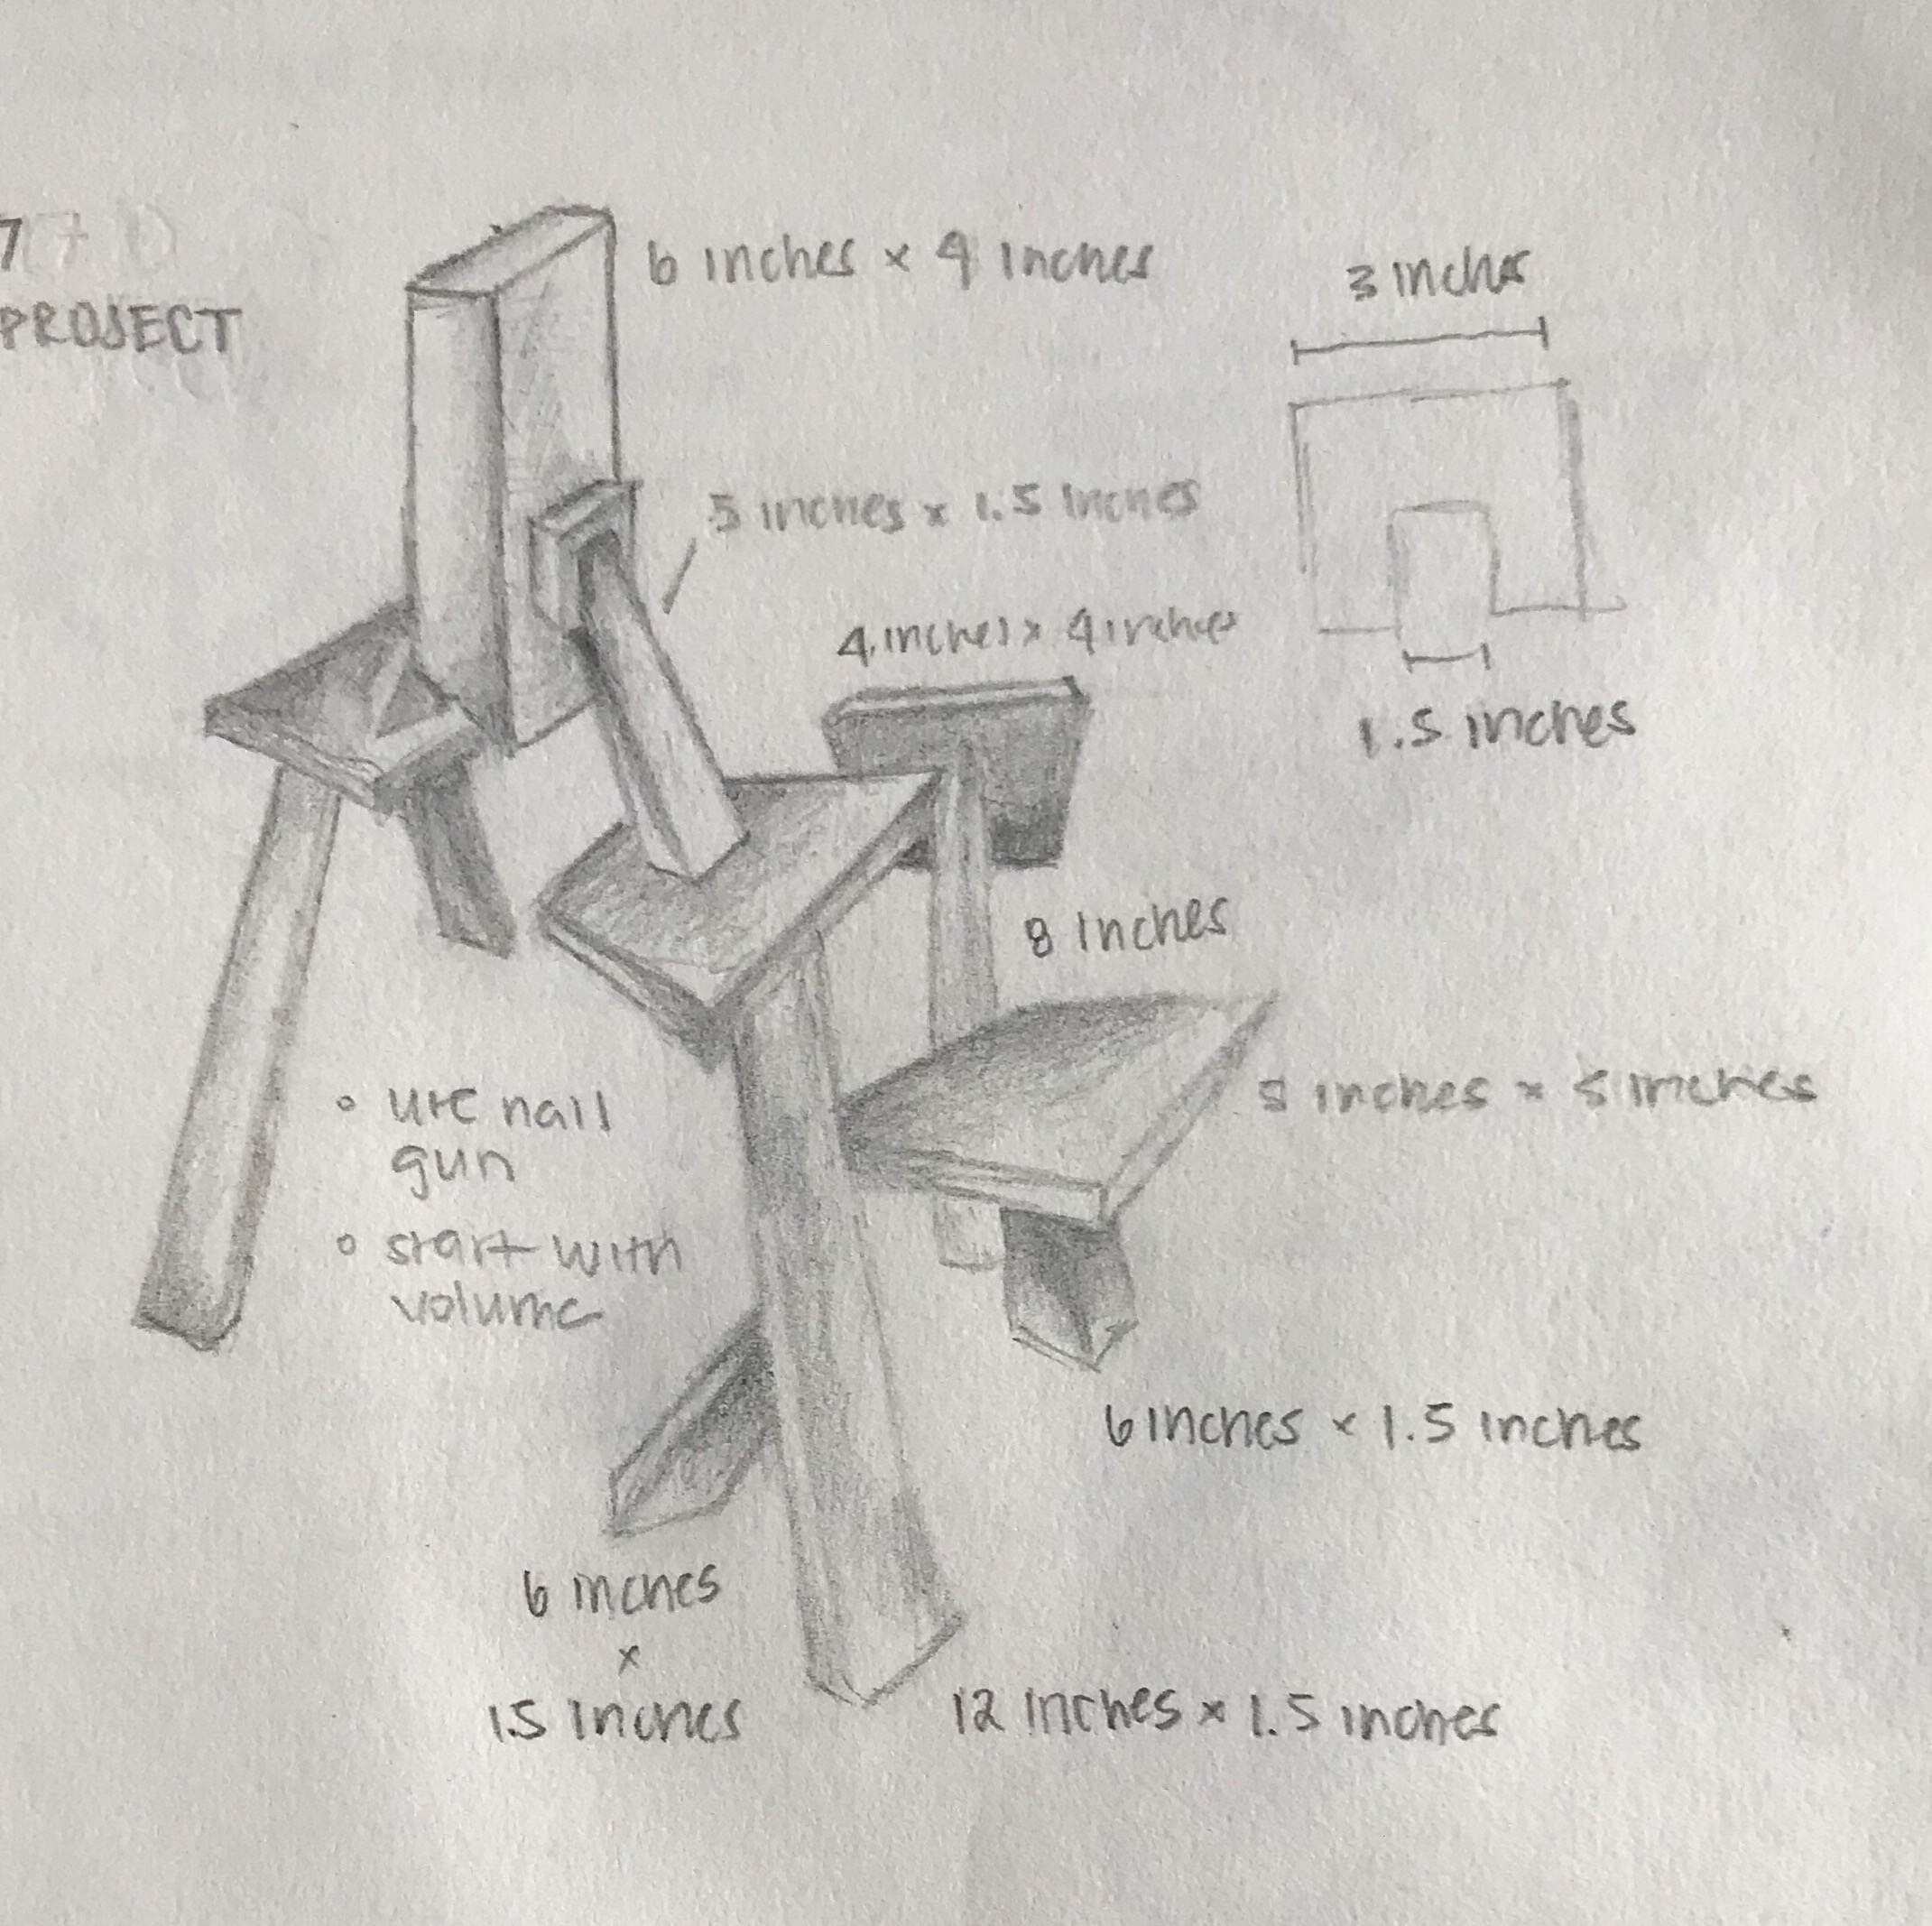 7
PROJECT
6 inches x 4 inches
3 inches
5 inches x 1.5 inches
4 inches x 4 inches
1.5 inches
8 inches
5 inches x 5 inches
• use nail
gun
• start with
volume
6 inches x 1.5 inches
6 inches
x
1.5 inches
12 inches x 1.5 inches